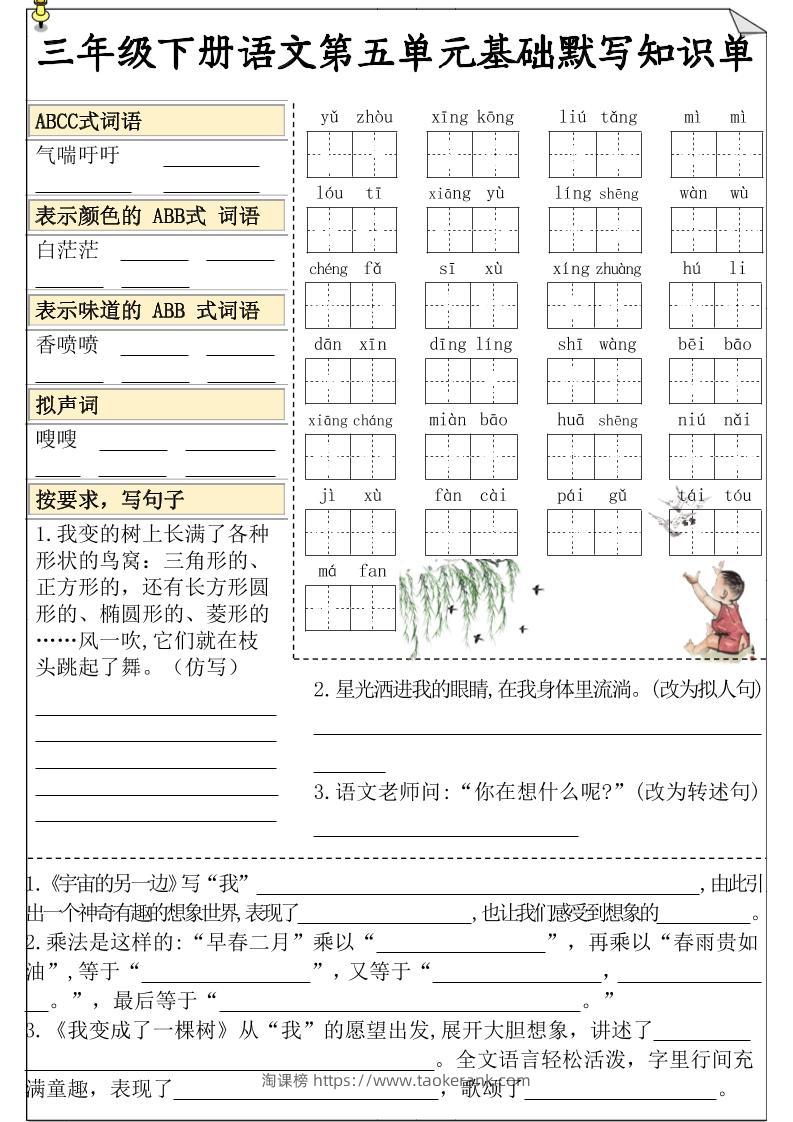 三年级下册语文第五单元基础默写知识单
ABCC式词语
气喘吁吁
表示颜色的 ABB式 词语
白茫茫
表示味道的 ABB 式词语
香喷喷
拟声词
嗖嗖
按要求，写句子
1.我变的树上长满了各种
形状的鸟窝：三角形的、
正方形的，还有长方形圆
形的、椭圆形的、菱形的
……风一吹,它们就在枝
头跳起了舞。（仿写）
yǔ zhòu xīng kōng liú tǎng mì mì
lóu tī xiāng yù líng shēng wàn wù
chéng fǎ sī xù xíng zhuàng hú li
dān xīn dīng líng shī wàng bēi bāo
xiāng cháng miàn bāo huā shēng niú nǎi
jì xù fàn cài pái gǔ tái tóu
má fan
2.星光洒进我的眼睛,在我身体里流淌。(改为拟人句)
3.语文老师问:“你在想什么呢?”(改为转述句)
1.《宇宙的另一边》写“我”,由此引
出一个神奇有趣的想象世界,表现了,也让我们感受到想象的。
2.乘法是这样的:“早春二月”乘以“”，再乘以“春雨贵如
油”,等于“”，又等于“，
。”，最后等于“。”
3.《我变成了一棵树》从“我”的愿望出发,展开大胆想象，讲述了
。全文语言轻松活泼，字里行间充
满童趣，表现了，歌颂了。
淘课榜 https://www.taokerank.com